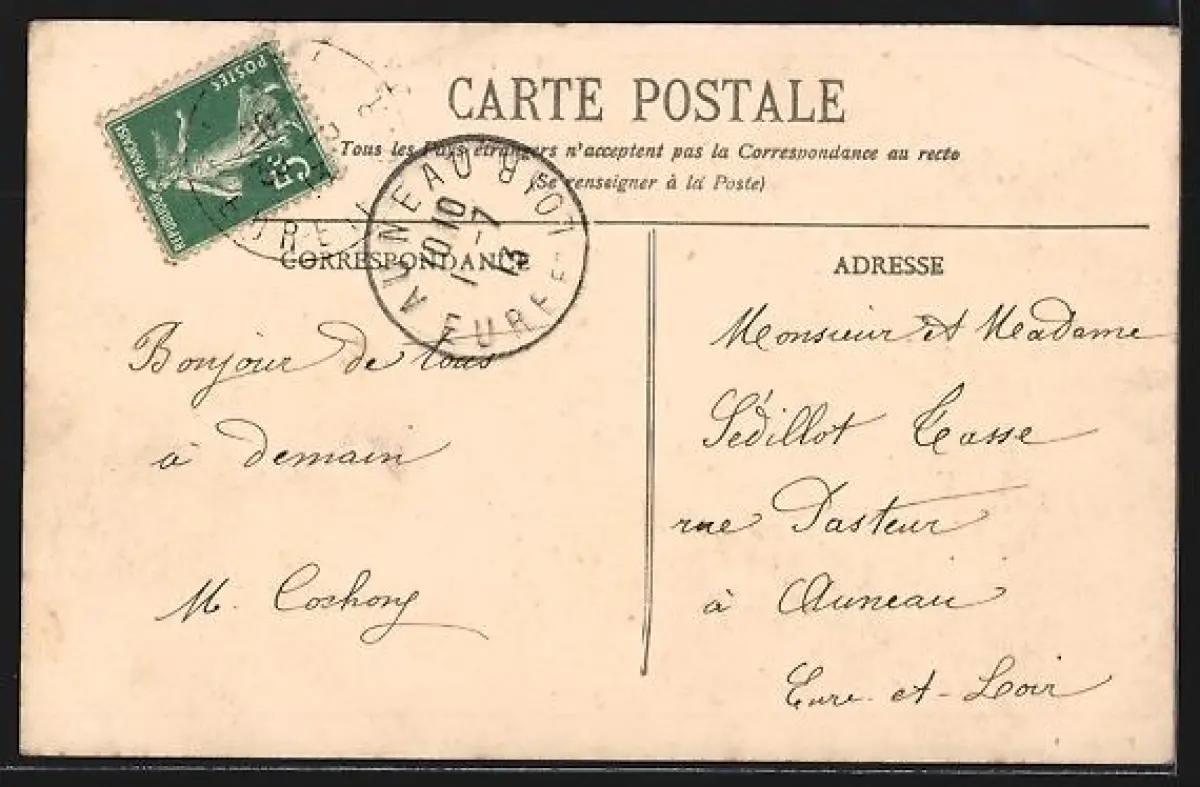 POSTES
5c
REPUBLIQUE FRANÇAISE
CARTE POSTALE
Tous les Pays étrangers n'acceptent pas la Correspondance au recto
(Se renseigner à la Poste)
AUNEAU
10 10
1 - 7
13
EURE ET LOIR
CORRESPONDANCE
ADRESSE
Bonjour de tous
à demain
M. Cochong
Monsieur et Madame
Sédillot Tasse
rue Pasteur
à Auneau
Eure-et-Loir